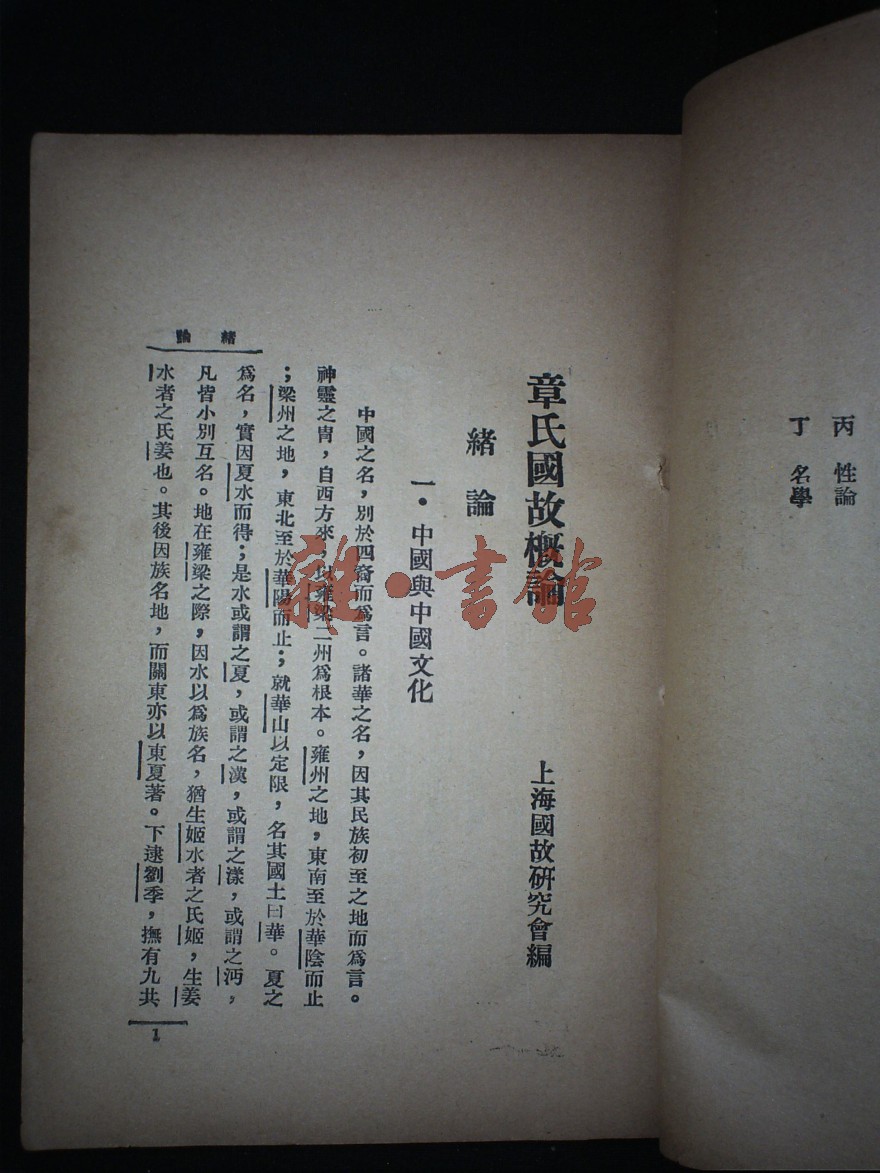 丙　性論
丁　名學
章氏國故概論
上海國故研究會編
緒論
一・中國與中國文化
中國之名，別於四裔而爲言。諸華之名，因其民族初至之地而爲言。
神靈之冑，自西方來，以雍梁二州爲根本。雍州之地，東南至於華陰而止
；梁州之地，東北至於華陽而止；就華山以定限，名其國土曰華。夏之
爲名，實因夏水而得；是水或謂之夏，或謂之漢，或謂之漾，或謂之沔，
凡皆小別互名。地在雍梁之際，因水以爲族名，猶生姬水者之氏姬，生姜
水者之氏姜也。其後因族名地，而關東亦以東夏著。下逮劉季，撫有九共
緒論
1
雜・書館